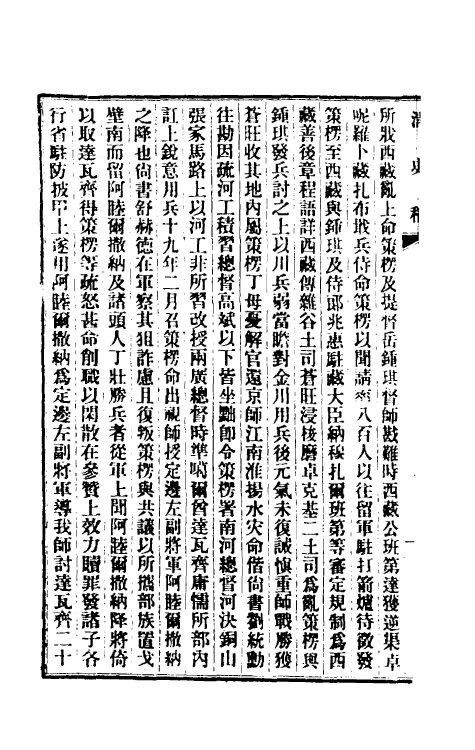 清史稿
所戕西藏亂上命策楞及提督岳鍾琪督師戡難時西藏公班第達獲逆渠卓
呢羅卜藏扎布戢兵待命策楞以聞請率八百人以往留軍駐打箭爐待徵發
策楞至西藏與鍾琪及侍郎兆惠駐藏大臣納穆扎爾班第等審定規制爲西
藏善後章程語詳西藏傳雜谷土司蒼旺浸梭磨卓克基二土司爲亂策楞與
鍾琪發兵討之上以川兵弱當瞻對金川用兵後元氣未復誡慎重師戰勝獲
蒼旺收其地內屬策楞丁母憂解官還京師江南淮揚水災命偕尚書劉統勳
往勘因疏河工積習總督高斌以下皆坐黜卽令策楞署南河總督河決銅山
張家馬路上以河工非所習改授兩廣總督時準噶爾酋達瓦齊庸懦所部內
訌上銳意用兵十九年二月召策楞命出視師授定邊左副將軍阿睦爾撒納
之降也尚書舒赫德在軍察其狙詐慮且復叛策楞與共議以所攜部族置戈
壁南而留阿睦爾撒納及諸頭人丁壯勝兵者從軍上聞阿睦爾撒納降將倚
以取達瓦齊得策楞等疏怒甚命削職以閑散在參贊上效力贖罪發諸子各
行省駐防披甲上遂用阿睦爾撒納爲定邊左副將軍導我師討達瓦齊二十